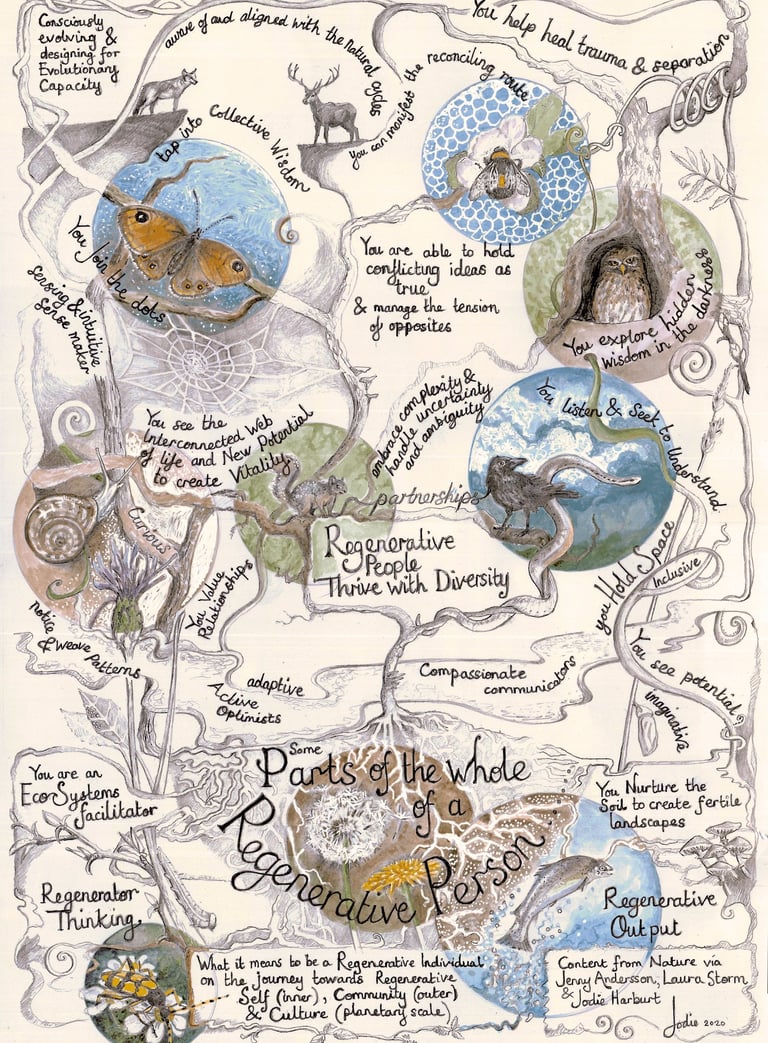 Consciously
evolving &
designing for
Evolutionary
Capacity
aware of and aligned with the natural cycles
You help heal trauma & separation
You can manifest the reconciling route
tap into Collective Wisdom
You join the dots
sensing & intuitive
sense maker
You are able to hold
conflicting ideas as
true
& manage the tension
of opposites
You explore hidden
wisdom in the darkness
You see the
Interconnected Web
of life and New Potential
to create Vitality
embrace complexity &
handle uncertainty
and ambiguity
You listen & Seek to Understand
partnerships
Curious
Regenerative
People
Thrive with Diversity
You Value
Relationships
you Hold Space
Inclusive
notice
& Weave Patterns
adaptive
Active
Optimists
Compassionate
communicators
You see potential
imaginative
Some
Parts of the whole
of a
Regenerative Person
You are an
EcoSystems
facilitator
You Nurture the
Soil to create fertile
landscapes
Regenerator
Thinking
Regenerative
Output
What it means to be a Regenerative Individual
on the journey towards Regenerative
Self (inner), Community (outer)
& Culture (planetary scale)
Content from Nature via
Jenny Andersson, Laura Storm
& Jodie Harburt
Jodie 2020